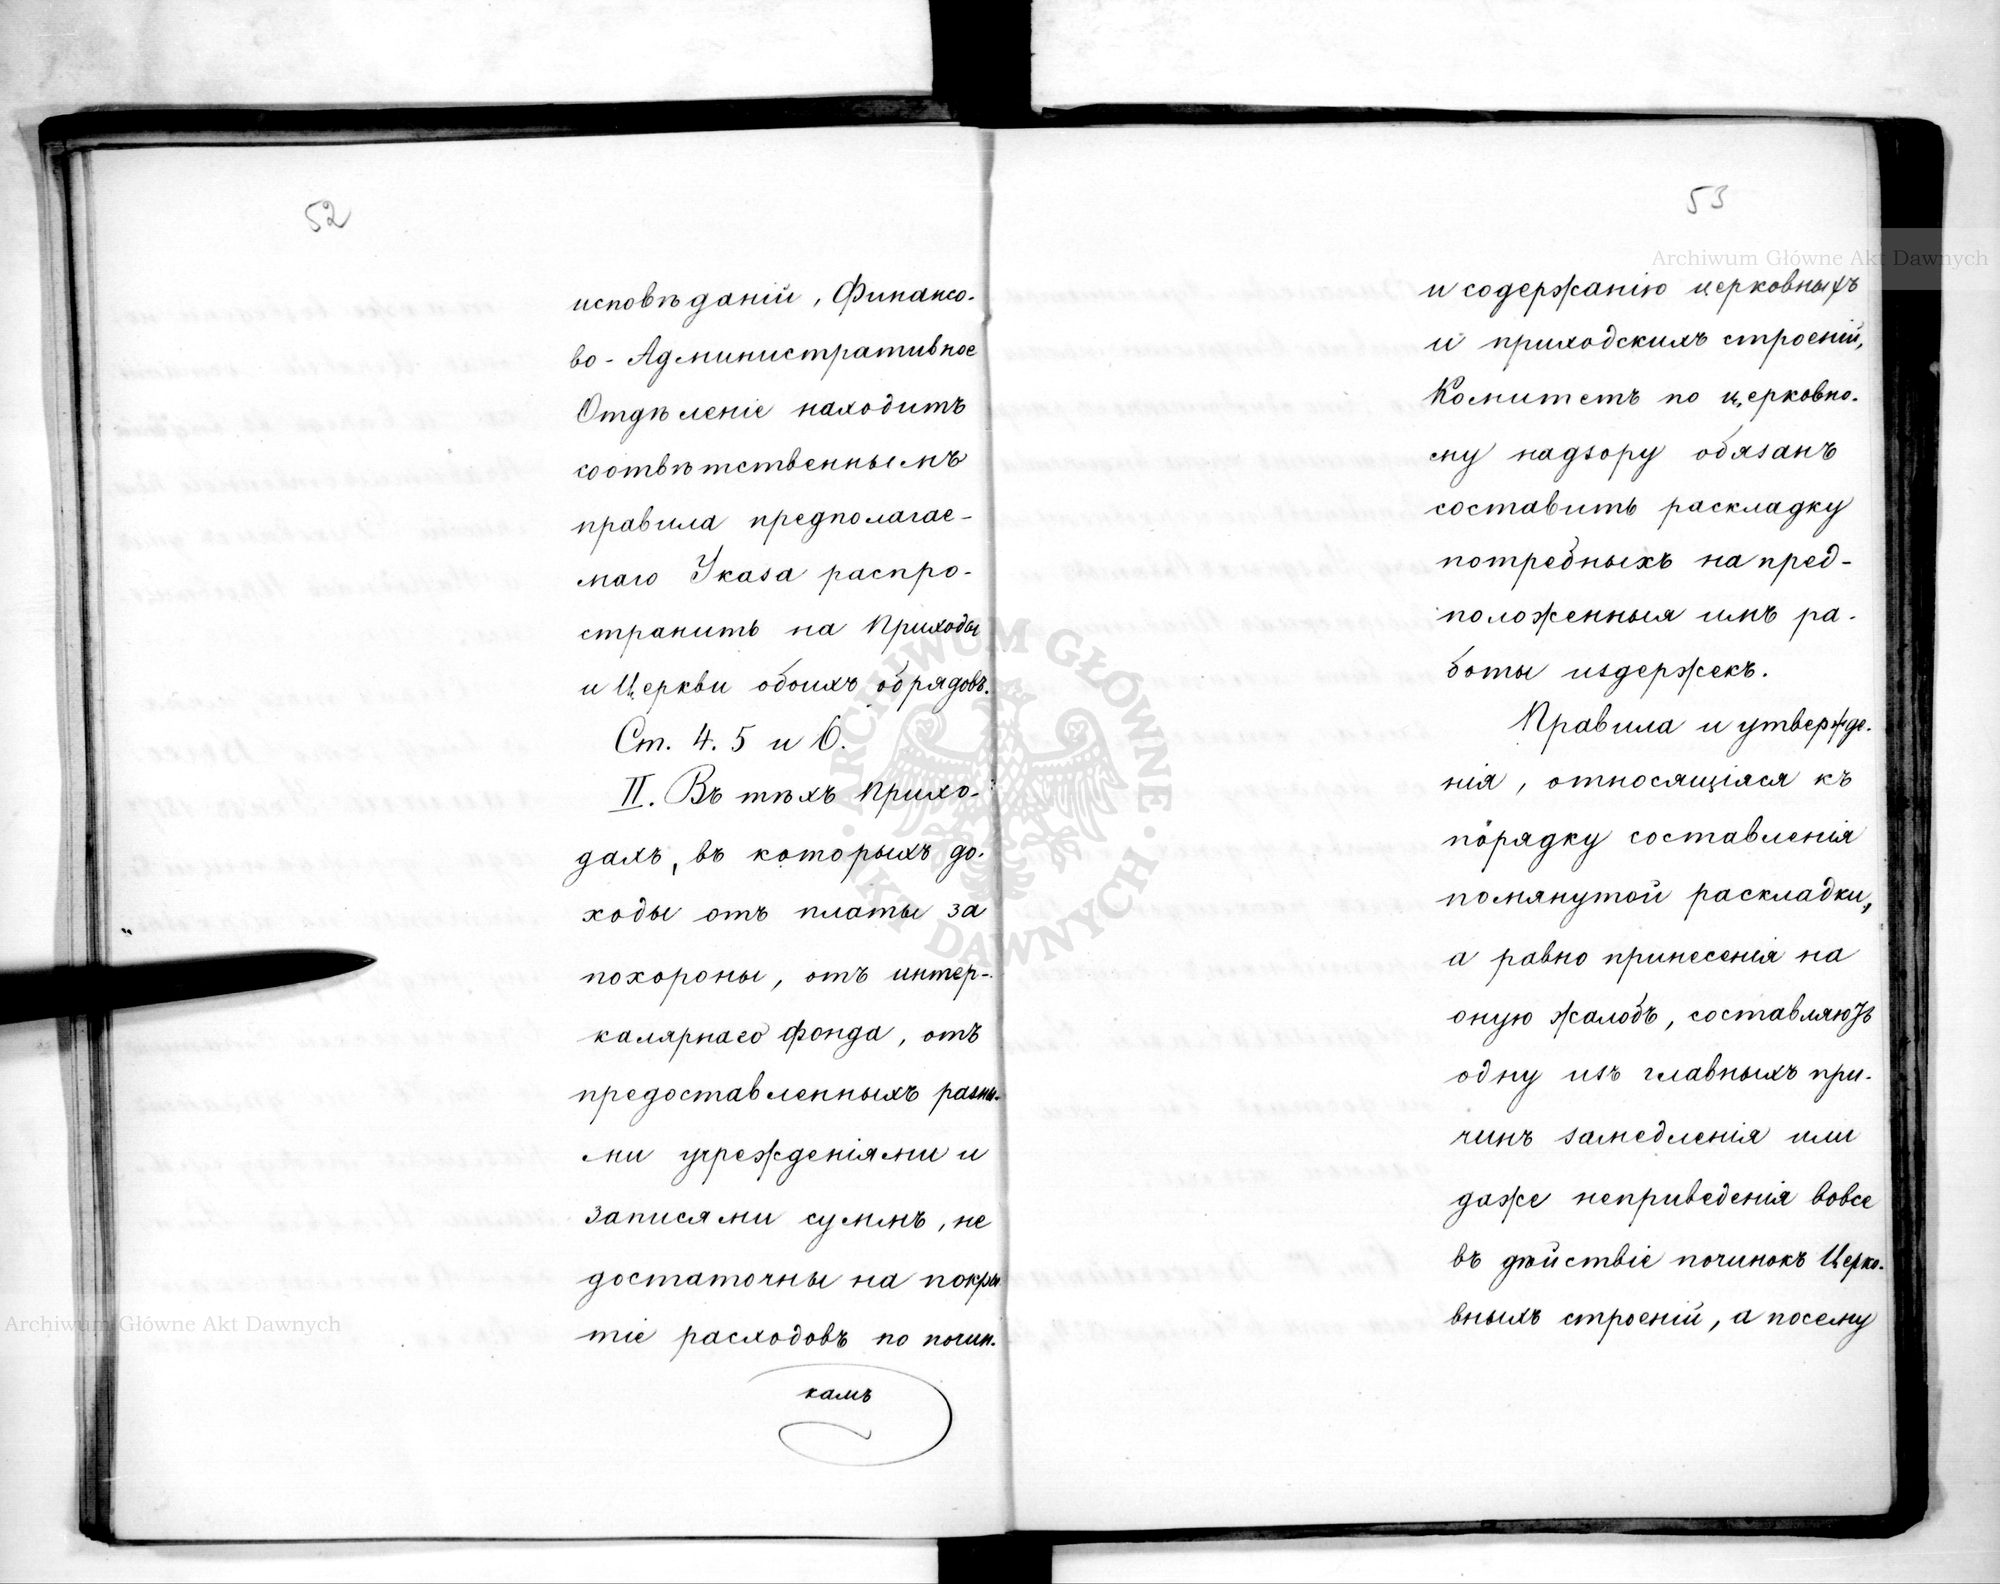 52
исповѣданій, Финансо-
во-Административное
Отдѣленіе находитъ
соотвѣтственнымъ
правила предполагае-
маго Указа распро-
странить на Приходы
и Церкви обоихъ обрядовъ.
Ст. 4. 5 и 6.
II. Въ тѣхъ Прихо-
дахъ, въ которыхъ до-
ходы отъ платы за
похороны, отъ интер-
калярнаго фонда, отъ
предоставленныхъ разны-
ми учрежденіями и
записями суммъ, не
достаточны на покры
тіе расходовъ по почин-
камъ
53
и содержанію церковныхъ
и приходскихъ строеній,
Комитетъ по церковно-
му надзору обязанъ
составить раскладку
потребныхъ на пред-
положенныя имъ ра-
боты издержекъ.
Правила и утвержде-
нія, относящіяся къ
порядку составленія
помянутой раскладки,
а равно принесенія на
оную жалобъ, составляютъ
одну изъ главныхъ при-
чинъ замедленія или
даже неприведенія вовсе
въ дѣйствіе починокъ Церко-
вныхъ строеній, а посему
Archiwum Główne Akt Dawnych
ARCHIWUM GŁÓWNE · AKT DAWNYCH ·
Archiwum Główne Akt Dawnych